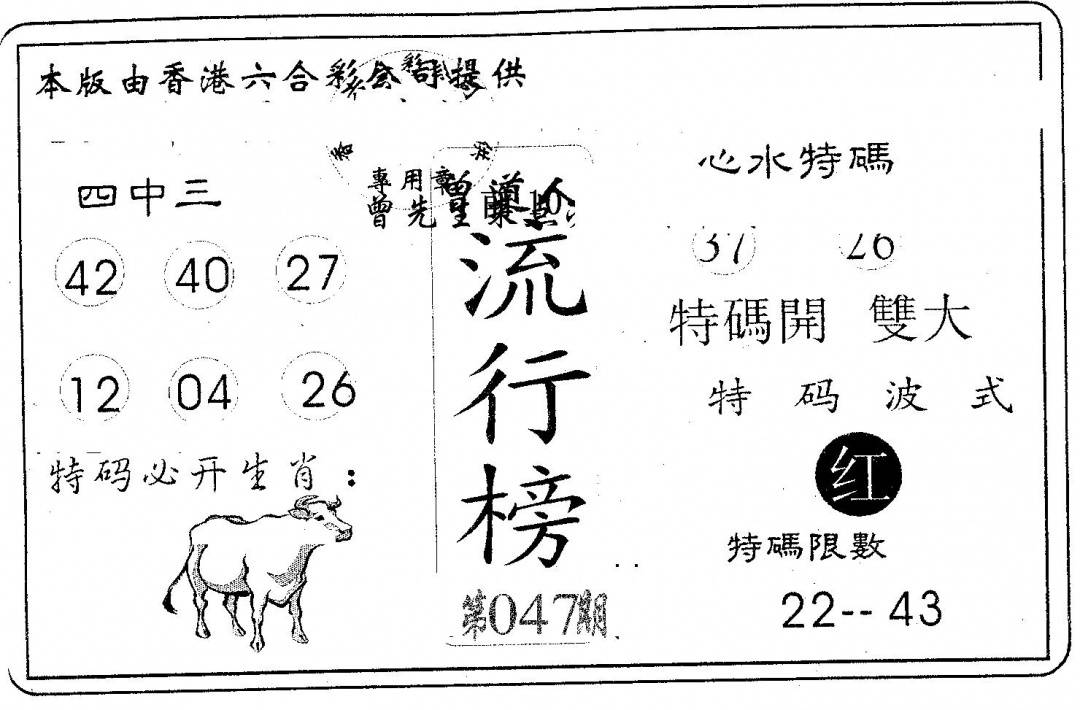 本版由香港六合彩公司提供
四中三
42 40 27
12 04 26
特码必开生肖：
專用章
曾先生
流行榜
第047期
心水特碼
37 26
特碼開 雙大
特码波式
红
特碼限數
22-- 43